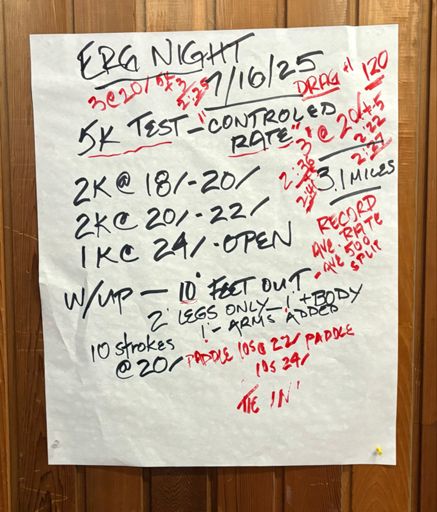 ERG NIGHT
7/10/25
DRAG 120
3@20/
5K TEST - "CONTROLED
RATE"
3' @ 20/+.5
2:36
2:22
3.1 MILES
2K@ 18/-20/
2K@ 20/-22/
1K@ 24/-OPEN
RECORD
AVE. RATE
- AVE 500
SPLIT
W/UP - 10' FEET OUT
2' LEGS ONLY - 1' + BODY
1' - ARMS ADDED
10 strokes
@ 20/
PADDLE 10S@ 22/ PADDLE
10S 24/
TIE IN!